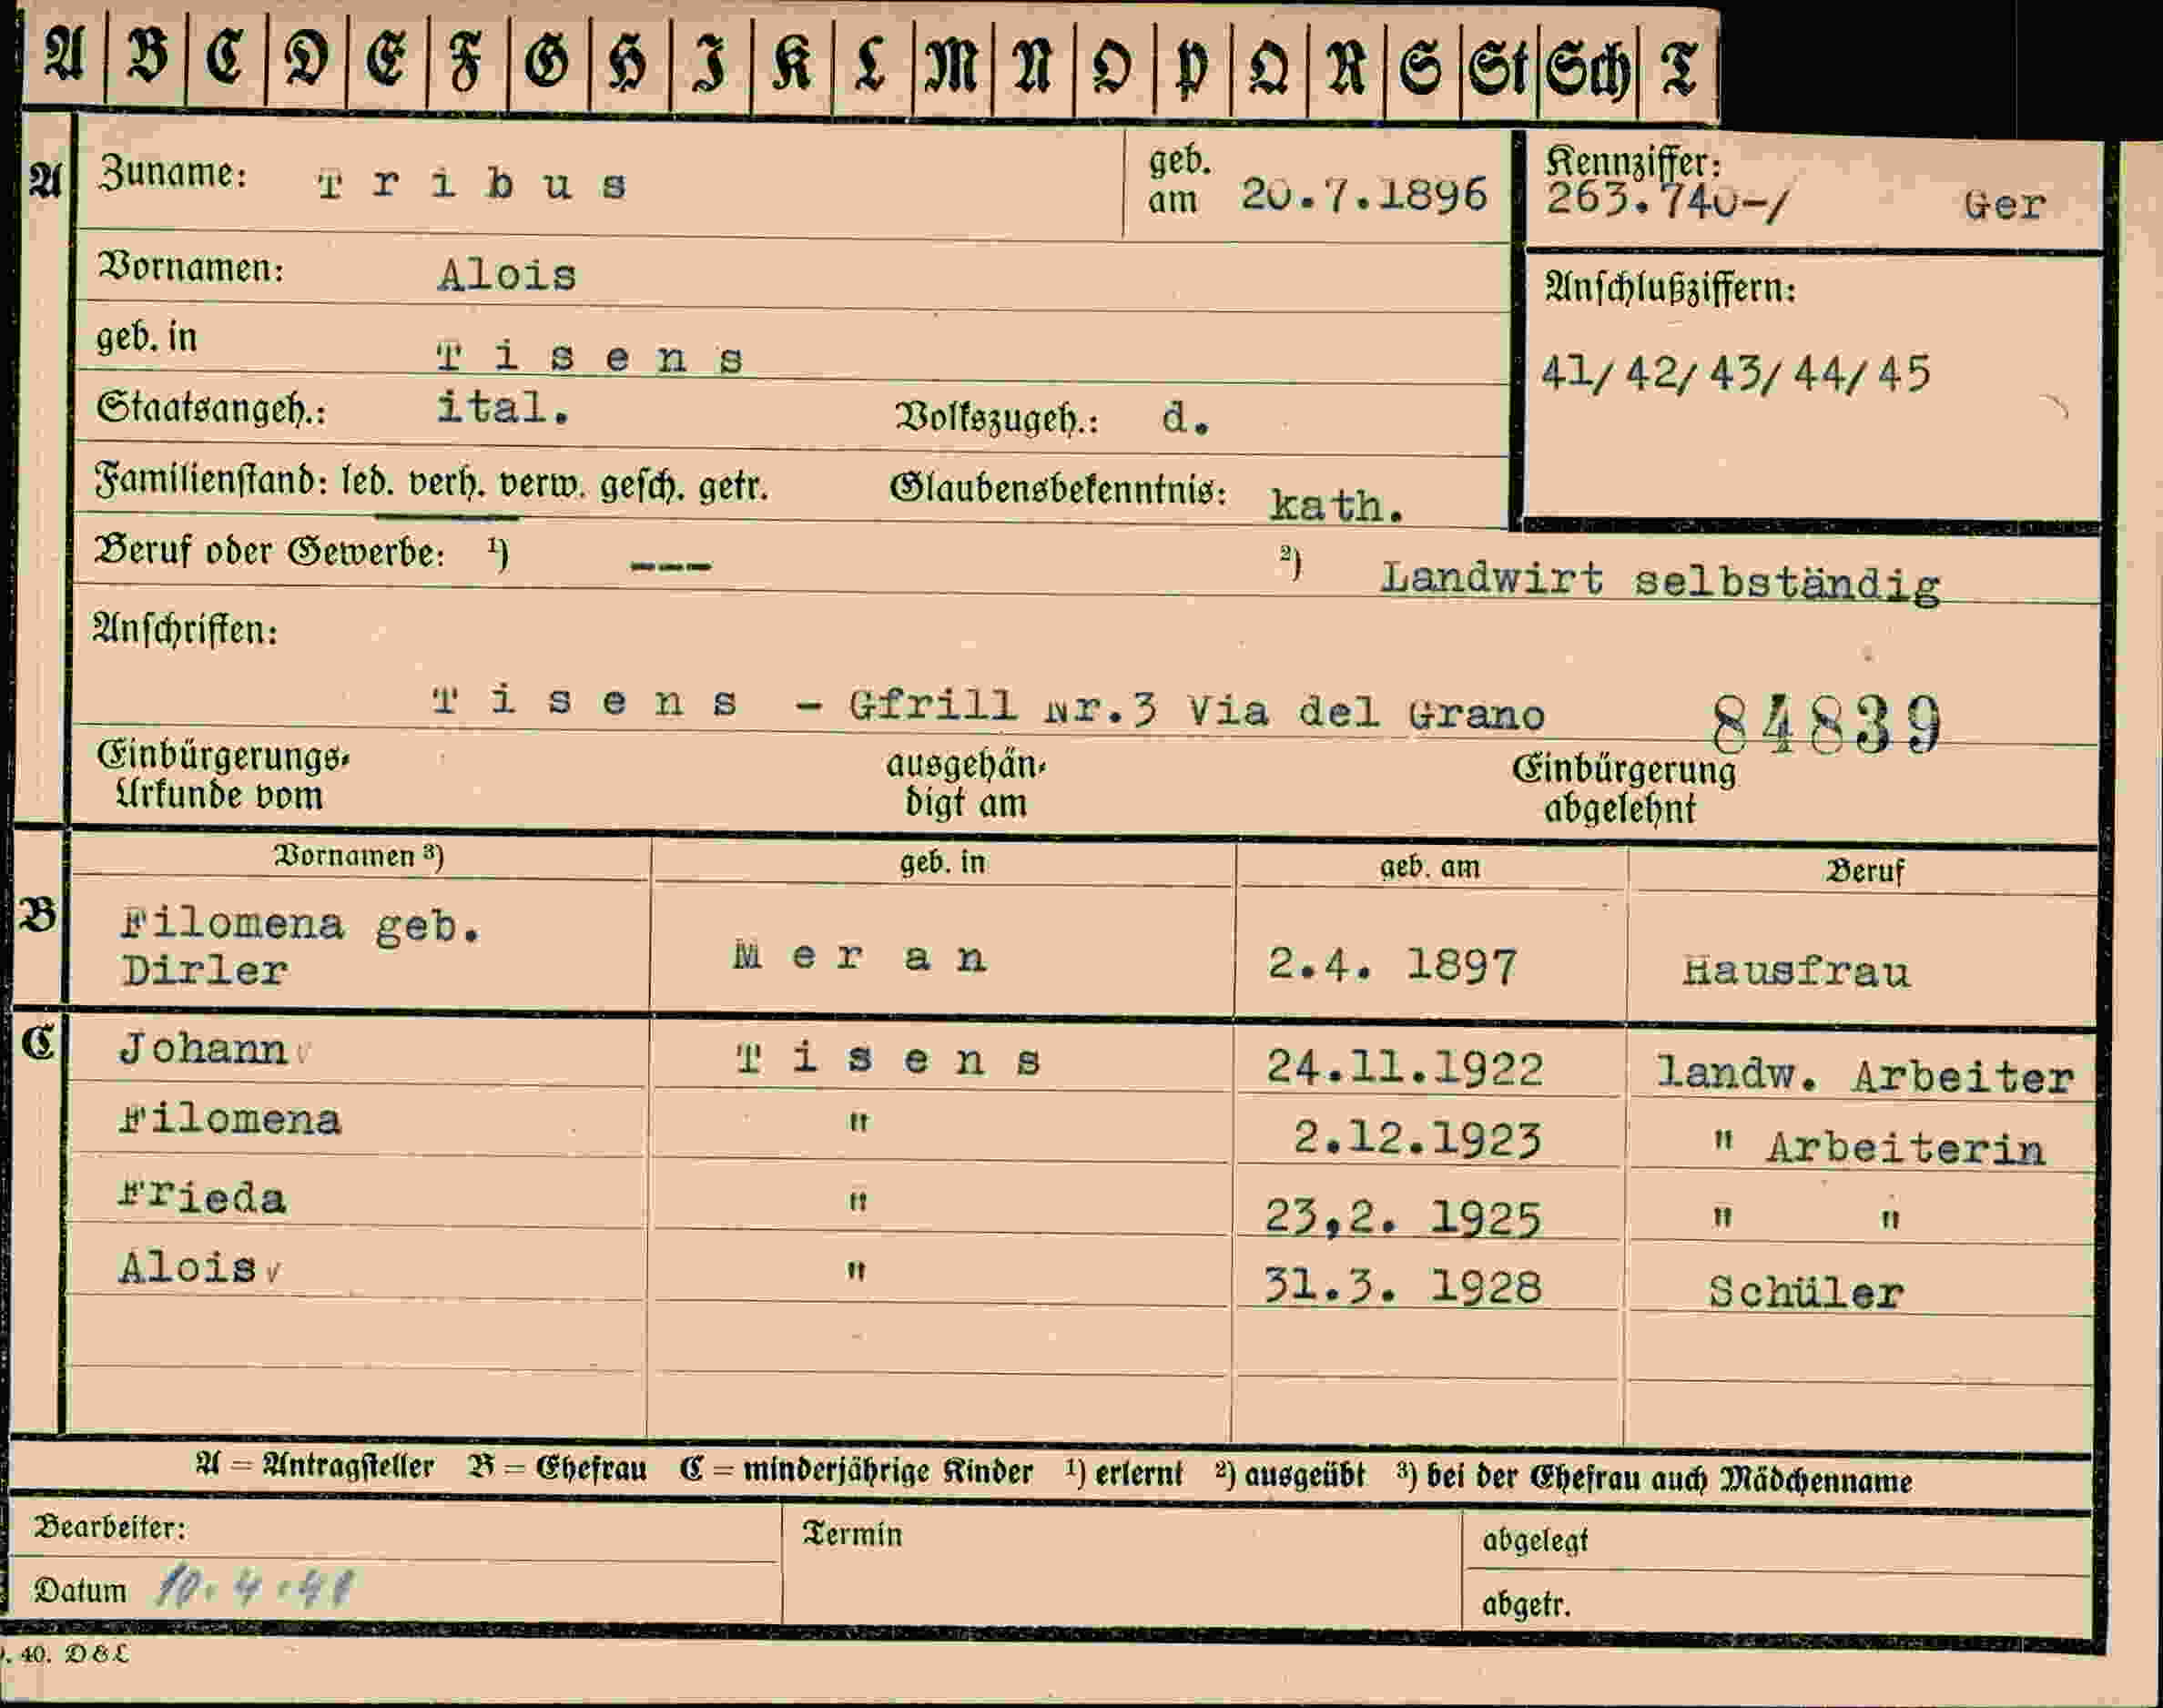 A B C D E F G H I K L M N O P Q R S St Sch T
A Zuname: Tribus geb. am 20.7.1896 Kennziffer: 263.740-/ Ger
Vornamen: Alois
Anschlußziffern:
geb. in Tisens
41/42/43/44/45
Staatsangeh.: ital. Volkszugeh.: d.
Familienstand: led. verh. verw. gesch. getr. Glaubensbekenntnis: kath.
Beruf oder Gewerbe: ¹) --- ²) Landwirt selbständig
Anschriften:
Tisens - Gfrill Nr.3 Via del Grano 84839
Einbürgerungs-Urkunde vom ausgehändigt am Einbürgerung abgelehnt
Vornamen ³) geb. in geb. am Beruf
B Filomena geb.
Dirler Meran 2.4. 1897 Hausfrau
C Johann v Tisens 24.11.1922 landw. Arbeiter
Filomena " 2.12.1923 " Arbeiterin
Frieda " 23,2. 1925 " "
Alois v " 31.3. 1928 Schüler
A = Antragsteller B = Ehefrau C = minderjährige Kinder ¹) erlernt ²) ausgeübt ³) bei der Ehefrau auch Mädchenname
Bearbeiter: Termin abgelegt
Datum 10.4.41 abgetr.
. 40. D & L